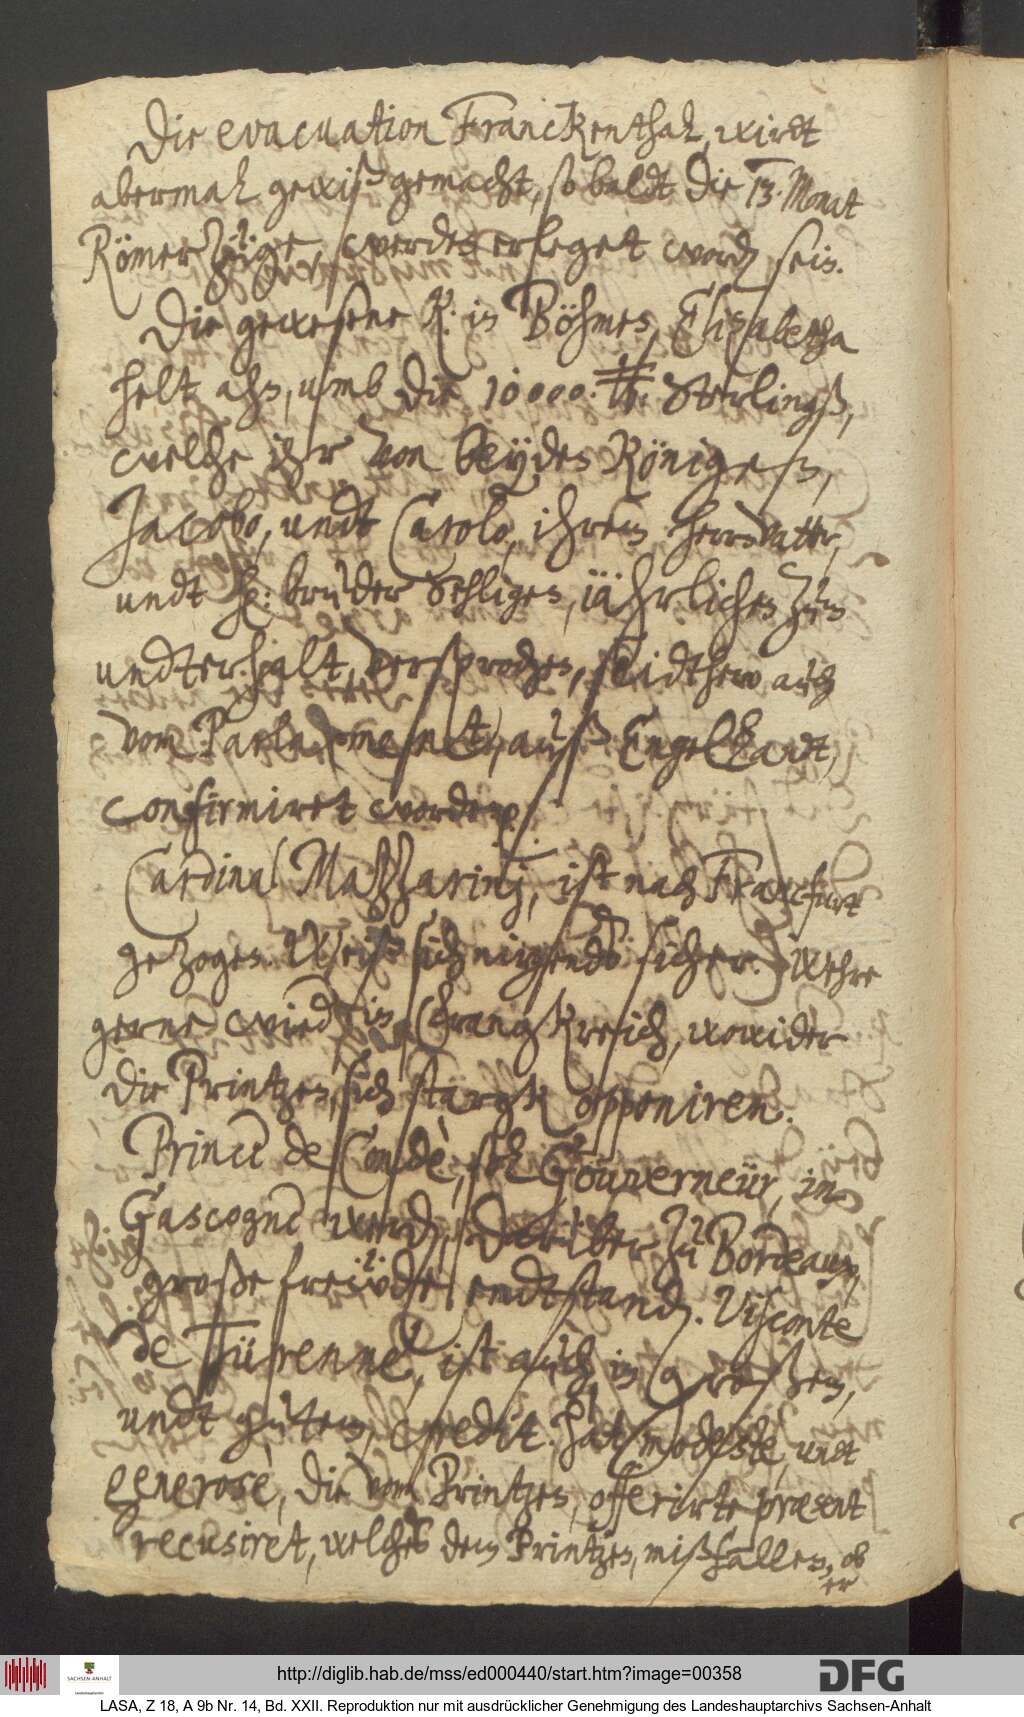 Die evacuation Franckenthal, wirdt
abermal gewiß gemacht, so baldt die 13. Monat
RömerZüge, werden erleget word sein.
Die gewesene K: in Böhmen, Elisabetha
helt ahn, umb die 10000. ℔. Sterlingß,
welche ihr von beyden Königeß,
Jacobo, undt Carolo, ihrem herrnvatter,
undt h: bruder Sehligen, iährlichen zum
undterhalt, versprochen, seidthero auch
vom Parlament, auß Engellandt,
confirmiret worden.
Cardinal Mazzarinj, ist nach Franckfurt
gezogen. Weiß sich nirgends sicher. Wehre
gerne wied in Franckreich, wowider
die Printzen, sich starck opponiren.
Prince de Condè, soll Gouverneur, in
Gascogne werd, darüber zu Bordeaux,
große freude, endtstand. Viconte
de Türenne, ist auch in großem,
undt gutem, credit. hat modeste, undt
generose, die vom Printzen, offerirte præsent
recusiret, welches dem Printzen, mißfallen, ob
er
http://diglib.hab.de/mss/ed000440/start.htm?image=00358
SACHSEN-ANHALT
DFG
LASA, Z 18, A 9b Nr. 14, Bd. XXII. Reproduktion nur mit ausdrücklicher Genehmigung des Landeshauptarchivs Sachsen-Anhalt